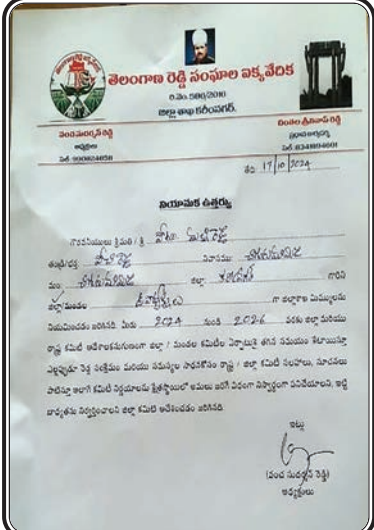 తెలంగాణ రెడ్డి సంఘాల ఐక్యవేదిక
రి.నెం. 580/2010
జిల్లా శాఖ కరీంనగర్.
పంచ సుదర్శన్ రెడ్డి
అధ్యక్షులు
చింతల శ్రీనివాస్ రెడ్డి
ప్రధాన కార్యదర్శి
తేది: 17/10/2024
నియామక ఉత్తర్వు
గౌరవనీయులు శ్రీమతి / శ్రీ
తండ్రి/భర్త నివాసము చిగురుమామిడి
మం. చిగురుమామిడి జిల్లా. కరీంనగర్ గారిని
జిల్లా/మండల ఉపాధ్యక్షులు గా జిల్లాశాఖ మిమ్ములను
నియమించడం జరిగినది. మీరు 2024 నుండి 2026 వరకు జిల్లా మరియు
రాష్ట్ర కమిటి ఆదేశాలకనుగుణంగా జిల్లా / మండల కమిటీల ఏర్పాటుకై తగిన సమయం కేటాయిస్తూ
ఎల్లప్పుడూ రెడ్ల సంక్షేమం మరియు సమస్యల సాధనకోసం రాష్ట్ర / జిల్లా కమిటి సలహాలు, సూచనలు
పాటిస్తూ అలాగే కమిటి నిర్ణయాలను క్షేత్రస్థాయిలో అమలు జరిగే విధంగా నిస్వార్థంగా పనిచేయాలని, ఇట్టి
బాధ్యతను నిర్వర్తించాలని జిల్లా కమిటి ఆదేశించడం జరిగినది.
ఇట్లు
(పంచ సుదర్శన్ రెడ్డి)
అధ్యక్షులు